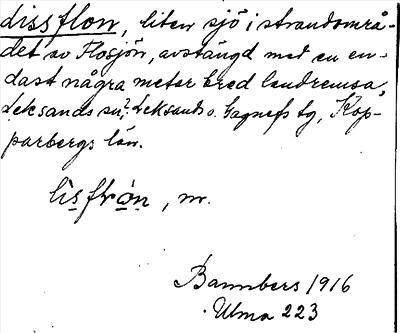 dissflon, liten sjö i strandområ-
det av Flosjön, avstängd med en en-
dast några meter bred landremsa,
Leksands sn, Leksands o. Gagnefs tg, Kop-
parbergs län.
lisflron, m.
Bannbers 1916
Ulma 223